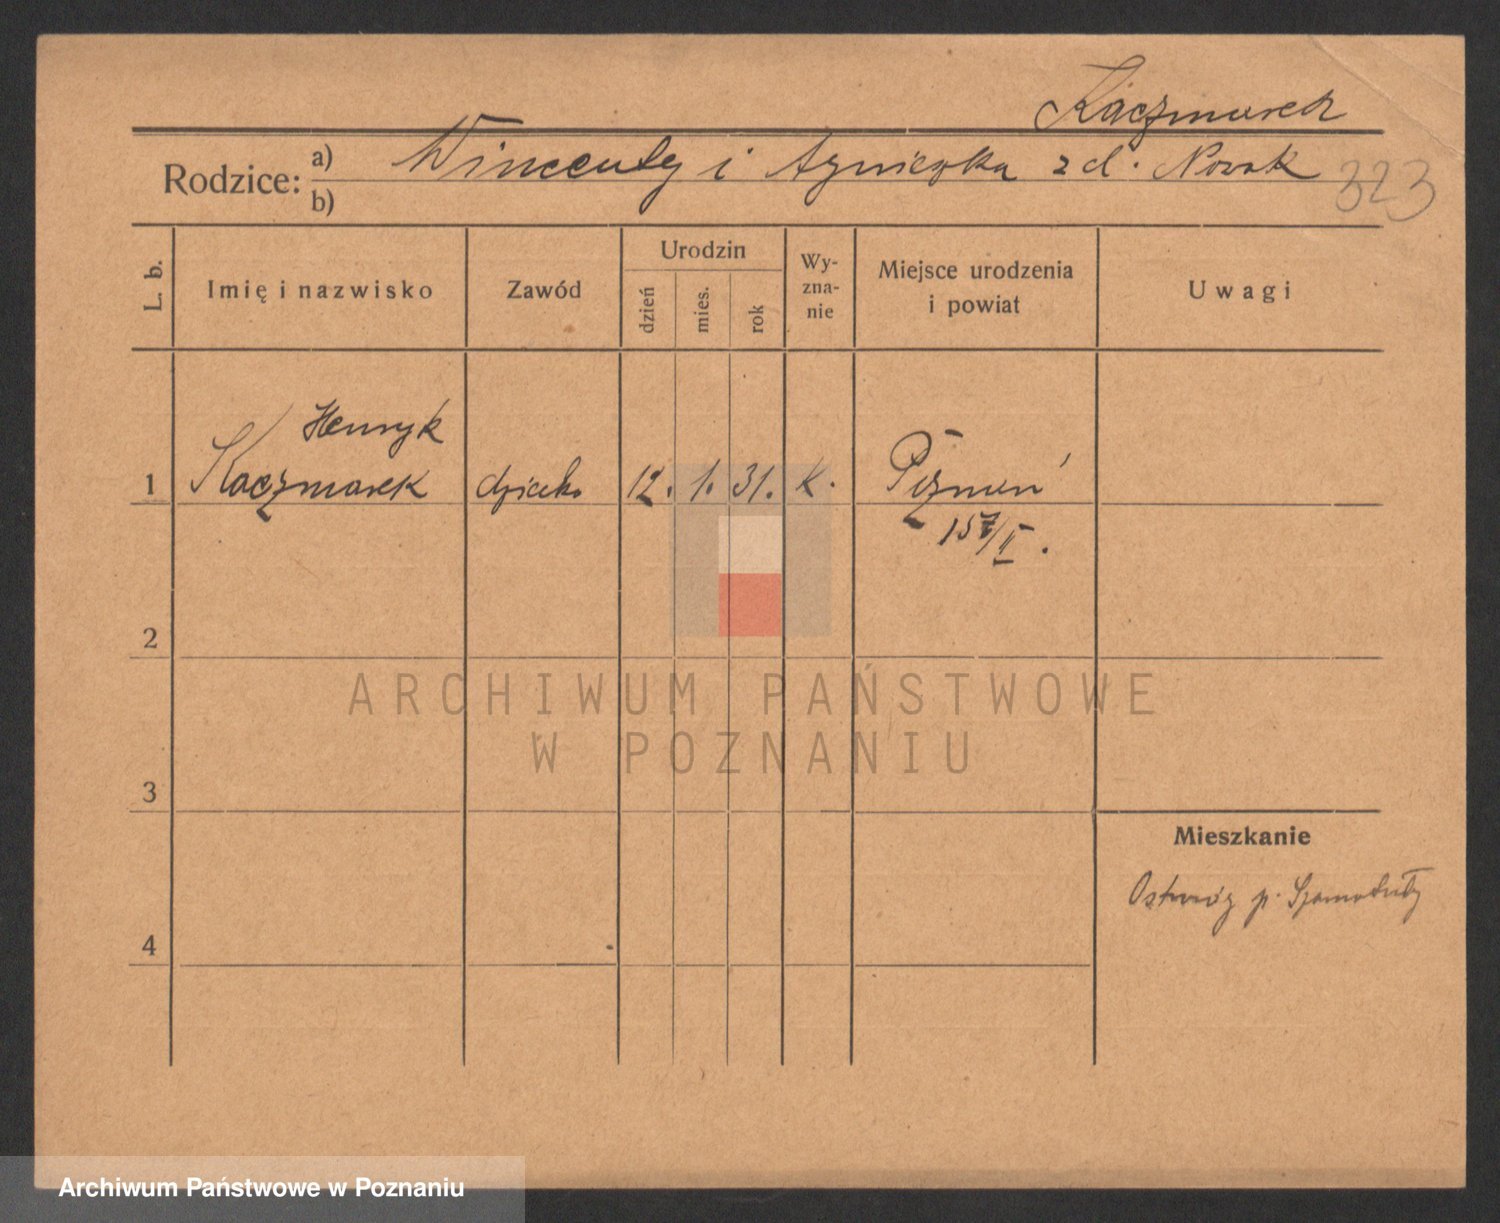 Kaczmarek
Rodzice: a) Wincenty i Agnieszka z d. Nowak
b)
323
L. b.
Imię i nazwisko
Zawód
Urodzin
dzień
mies.
rok
Wy-
zna-
nie
Miejsce urodzenia
i powiat
Uwagi
Henryk
1 Kaczmarek dziecko 12. 1. 31. k. Poznań
2
3
4
Mieszkanie
p. Szamotuły
ARCHIWUM PAŃSTWOWE
W POZNANIU
Archiwum Państwowe w Poznaniu